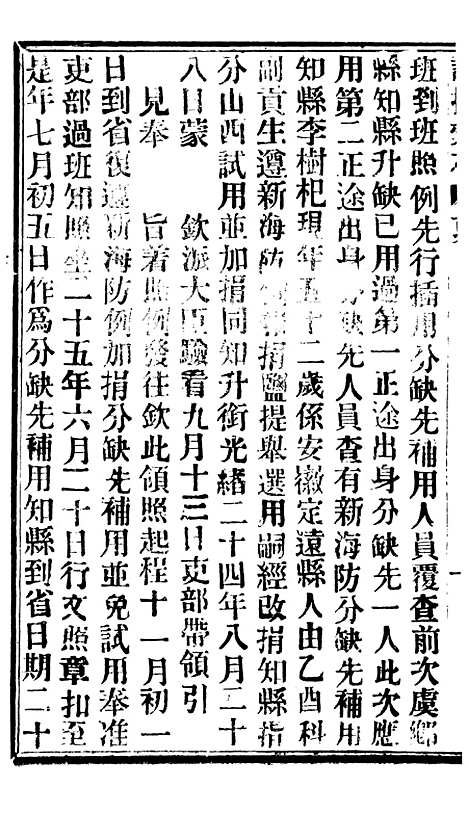 班到班照例先行插用分缺先補用人員覆查前次虞鄉
縣知縣升缺已用過第一正途出身分缺先一人此次應
用第二正途出身分缺先人員查有新海防分缺先補用
知縣李樹杞現年五十二歲係安徽定遠縣人由乙酉科
副貢生遵新海防例報捐鹽提舉選用嗣經改捐知縣指
分山西試用並加捐同知升銜光緒二十四年八月二十
八日蒙　欽派大臣驗看九月十三日吏部帶領引
見奉　旨着照例發往欽此領照起程十一月初一
日到省復遵新海防例加捐分缺先補用並免試用奉准
吏部過班知照坐二十五年六月二十日行文照章扣至
是年七月初五日作爲分缺先補用知縣到省日期二十